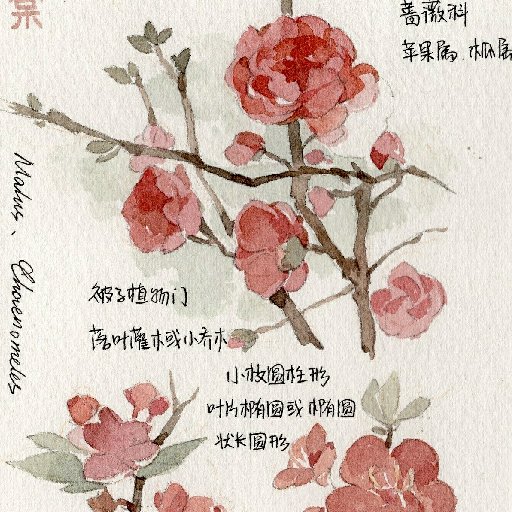 蔷薇科
苹果属、木瓜属
Malus、Chaenomeles
被子植物门
落叶灌木或小乔木
小枝圆柱形
叶片椭圆或椭圆
状长圆形